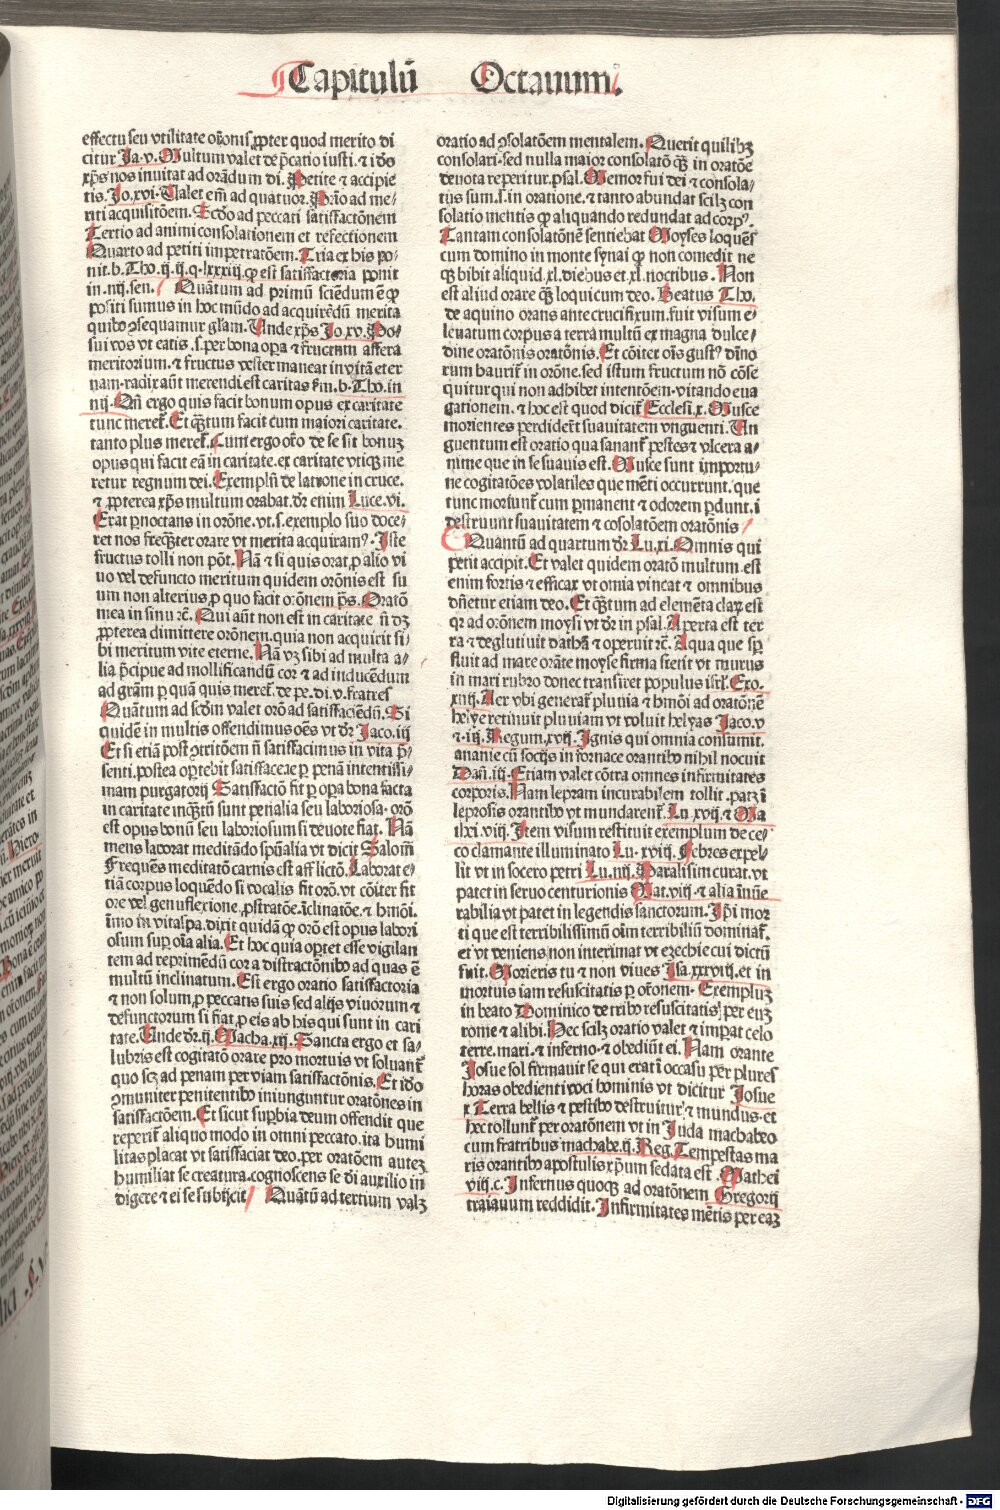 Capitulū Octauum.
effectu seu vtilitate orōnis ꝓpter quod merito di
citur Ja.v. Multum valet dep̄catio iusti. ⁊ iđo
xp̄s nos inuitat ad orādum di. Petite ⁊ accipie
tis. Jo.xvi. Ualet em̄ ad quatuor. Prīo ad me⸗
riti acquisitōem. Scđo ad peccati satisfactōnem
Tertio ad animi consolationem et refectionem
Quarto ad petiti impetratōem. Tria ex his po⸗
nit.b. Tho.ij.ij.q.lxxxiij.ꝙ est satisfactoria ponit
in.iiij.sen. Quātum ad primū sciēdum ē ꝙ
positi sumus in hoc mūdo ad acquirēdū merita
quibꝰ ↄsequamur gl̄am. Unde xp̄s Jo.xv. Po⸗
sui vos vt eatis .s. per bona oꝑa ⁊ fructum affera
meritorium. ⁊ fructus vester maneat in vitā eter
nam. radix aūt merendi est caritas ẜm.b. Tho. in
iiij. Qn̄ ergo quis facit bonum opus ex caritate
tunc meret̄. Et q̄ꝫtum facit cum maiori caritate.
tanto plus meret̄. Cum ergo orō de se sit bonuꝫ
opus qui facit eā in caritate. ex caritate vtiqꝫ me
retur regnum dei. Exemplū de latrone in cruce.
⁊ ꝓpterea xp̄s multum orabat. dr̄ enim Luce.vi.
Erat ꝑnoctans in orōne. vt .s. exemplo suo doce⸗
ret nos freq̄nter orare vt merita acquiramꝰ. Iste
fructus tolli non pōt. Nā ⁊ si quis orat ꝓ alio vi
uo vel defuncto meritum quidem orōnis est su
um non alterius ꝓ quo facit orōnem p̄s. Oratō
mea in sinu rc̄. Qui aūt non est in caritate n̄ dꝫ
ꝓpterea dimittere orōnem. quia non acquirit si⸗
bi meritum vite eterne. Nā vꝫ sibi ad multa a⸗
lia p̄cipue ad mollificandū cor ⁊ ad inducēdum
ad gr̄am ꝑ quā quis meret̄. de pe. di. v. fratres
Quātum ad scđm valet orō ad satisfaciēdū. Si
quidē in multis offendimus oēs vt dr̄ Jaco.iij
Et si etiā post ↄtritōem n̄ satisfacimus in vita p̄⸗
senti. postea oꝑtebit satisfacere ꝑ penā intentissi⸗
mam purgatorij Satisfactō fit ꝑ oꝑa bona facta
in caritate inq̄ꝫtū sunt penalia seu laboriosa. orō
est opus bonū seu laboriosum si deuote fiat. Nā
mens laborat meditādo spūalia vt dicit Salom̄
Frequēs meditatō carnis est afflictō. Laborat e⸗
tiā corpus loquēdo si vocalis fit orō. vt cōiter fit
ore vel genuflexione ꝓstratōe. īclinatōe. ⁊ hmōi.
īmo in vitaspa. dixit quidā ꝙ orō est opus labori
osum suꝑ oīa alia. Et hoc quia oꝑtet esse vigilan
tem ad reprimēdū cor a distractōnibꝰ ad quas ē
multū inclinatum. Est ergo oratio satisfactoria
⁊ non solum ꝓ peccatis suis sed alijs viuorum ⁊
defunctorum si fiat ꝓ eis ab his qui sunt in cari
tate. Unde dr̄.ij. Macha.xij. Sancta ergo et sa⸗
lubris est cogitatō orare pro mortuis vt soluant̄
quo scꝫ ad penam per viam satisfactōnis. Et iđo
ↄmuniter penitentibꝰ iniunguntur oratōnes in
satisfactōem. Et sicut suꝑbia deum offendit que
reperit̄ aliquo modo in omni peccato. ita humi
litas placat vt satisfaciat deo. per oratōem auteꝫ
humiliat se creatura. cognoscens se diuino auxilio in
digere ⁊ ei se subijcit Quātū ad tertium valꝫ
oratio ad ↄsolatōem mentalem. Querit quilibꝫ
consolari. sed nulla maior consolatō q̄ꝫ in oratōe
deuota reperitur. psal. Memor fui dei ⁊ consola⸗
tus sum .s. in oratione. ⁊ tanto abundat scilꝫ con
solatio mentis ꝙ aliquando redundat ad corpꝰ.
Tantam consolatōnē sentiebat Moyses loquēs
cum domino in monte synai ꝙ non comedit ne
qꝫ bibit aliquid .xl. diebus et .xl. noctibus. Non
est aliud orare q̄ꝫ loqui cum deo. Beatus Tho.
de aquino orans ante crucifixum. fuit visum e⸗
leuatum corpus a terra multū ex magna dulce⸗
dine oratōnis oratōnis. Et cōiter oīs gustꝰ dīno
rum haurit̄ in orōne. sed istum fructum nō cōse
quitur qui non adhibet intentōem. vitando eua
gationem. ⁊ hoc est quod dicit̄ Ecclesi.x. Musce
morientes perdider̄t suauitatem vnguenti. Un
guentum est oratio qua sanant̄ pestes ⁊ vlcera a⸗
nime que in se suauis est. Musce sunt importu⸗
ne cogitatōes volatiles que mēti occurrunt. que
tunc moriunt̄ cum ꝑmanent ⁊ odorem ꝑdunt. i
destruunt suauitatem ⁊ cōsolatōem oratōnis
Quantū ad quartum dr̄ Lu.xi. Omnis qui
petit accipit. Et valet quidem oratō multum. est
enim fortis ⁊ efficax vt omnia vincat ⁊ omnibus
dn̄etur etiam deo. Et q̄ꝫtum ad elemēta claꝝ est
qꝛ ad orōnem moysi vt dr̄ in psal. Aperta est ter
ra ⁊ deglutiuit dathā ⁊ operuit rc̄. Aqua que suꝑ
fluit ad mare orāte moyse firma stetit vt murus
in mari rubro donec transiret populus isrl̄. Exo.
xiiij. Aer vbi generat̄ pluuia ⁊ hmōi ad oratōnē
helye retinuit pluuiam vt voluit helyas Jaco.v
⁊.iij. Regum.xvij. Ignis qui omnia consumit.
ananie cū socijs in fornace orantibꝰ nihil nocuit
Dañ.iij. Etiam valet cōtra omnes infirmitates
corporis. Nam lepram incurabilem tollit. patꝫ ī
leprosis orantibꝰ vt mundarent̄. Lu.xvij. ⁊ Ma
thei.viij. Item visum restituit exemplum de ce⸗
co clamante illuminato Lu.xviij. Febres expel⸗
lit vt in socero petri Lu.iiij. Paralisim curat. vt
patet in seruo centurionis Mat.viij. ⁊ alia īnūe
rabilia vt patet in legendis sanctorum. Ipsi mor
ti que est terribilissimū oīm terribiliū dominat̄.
et vt veniens non interimat vt ezechie cui dictū
fuit. Morieris tu ⁊ non viues Isa.xxxviij. et in
mortuis iam resuscitatis ꝑ orōnem. Exempluꝫ
in beato Dominico de tribꝰ resuscitatis per euꝫ
rome ⁊ alibi. Hec scilꝫ oratio valet ⁊ imꝑat celo
terre. mari. ⁊ inferno. ⁊ obediūt ei. Nam orante
Josue sol firmauit se qui erat ī occasu per plures
horas obedienti voci hominis vt dicitur Josue
x. Terra bellis ⁊ pestibꝰ destruitur ⁊ mundus. et
hec tollunt̄ per oratōnem vt in Juda machabeo
cum fratribus machabe.ij. Reg. Tempestas ma
ris orantibꝰ apostolis xp̄um sedata est. Mathei
viij.c. Infernus quoqꝫ ad oratōnem Gregorij
traianum reddidit. Infirmitates mētis per eaꝫ
Digitalisierung gefördert durch die Deutsche Forschungsgemeinschaft - DFG